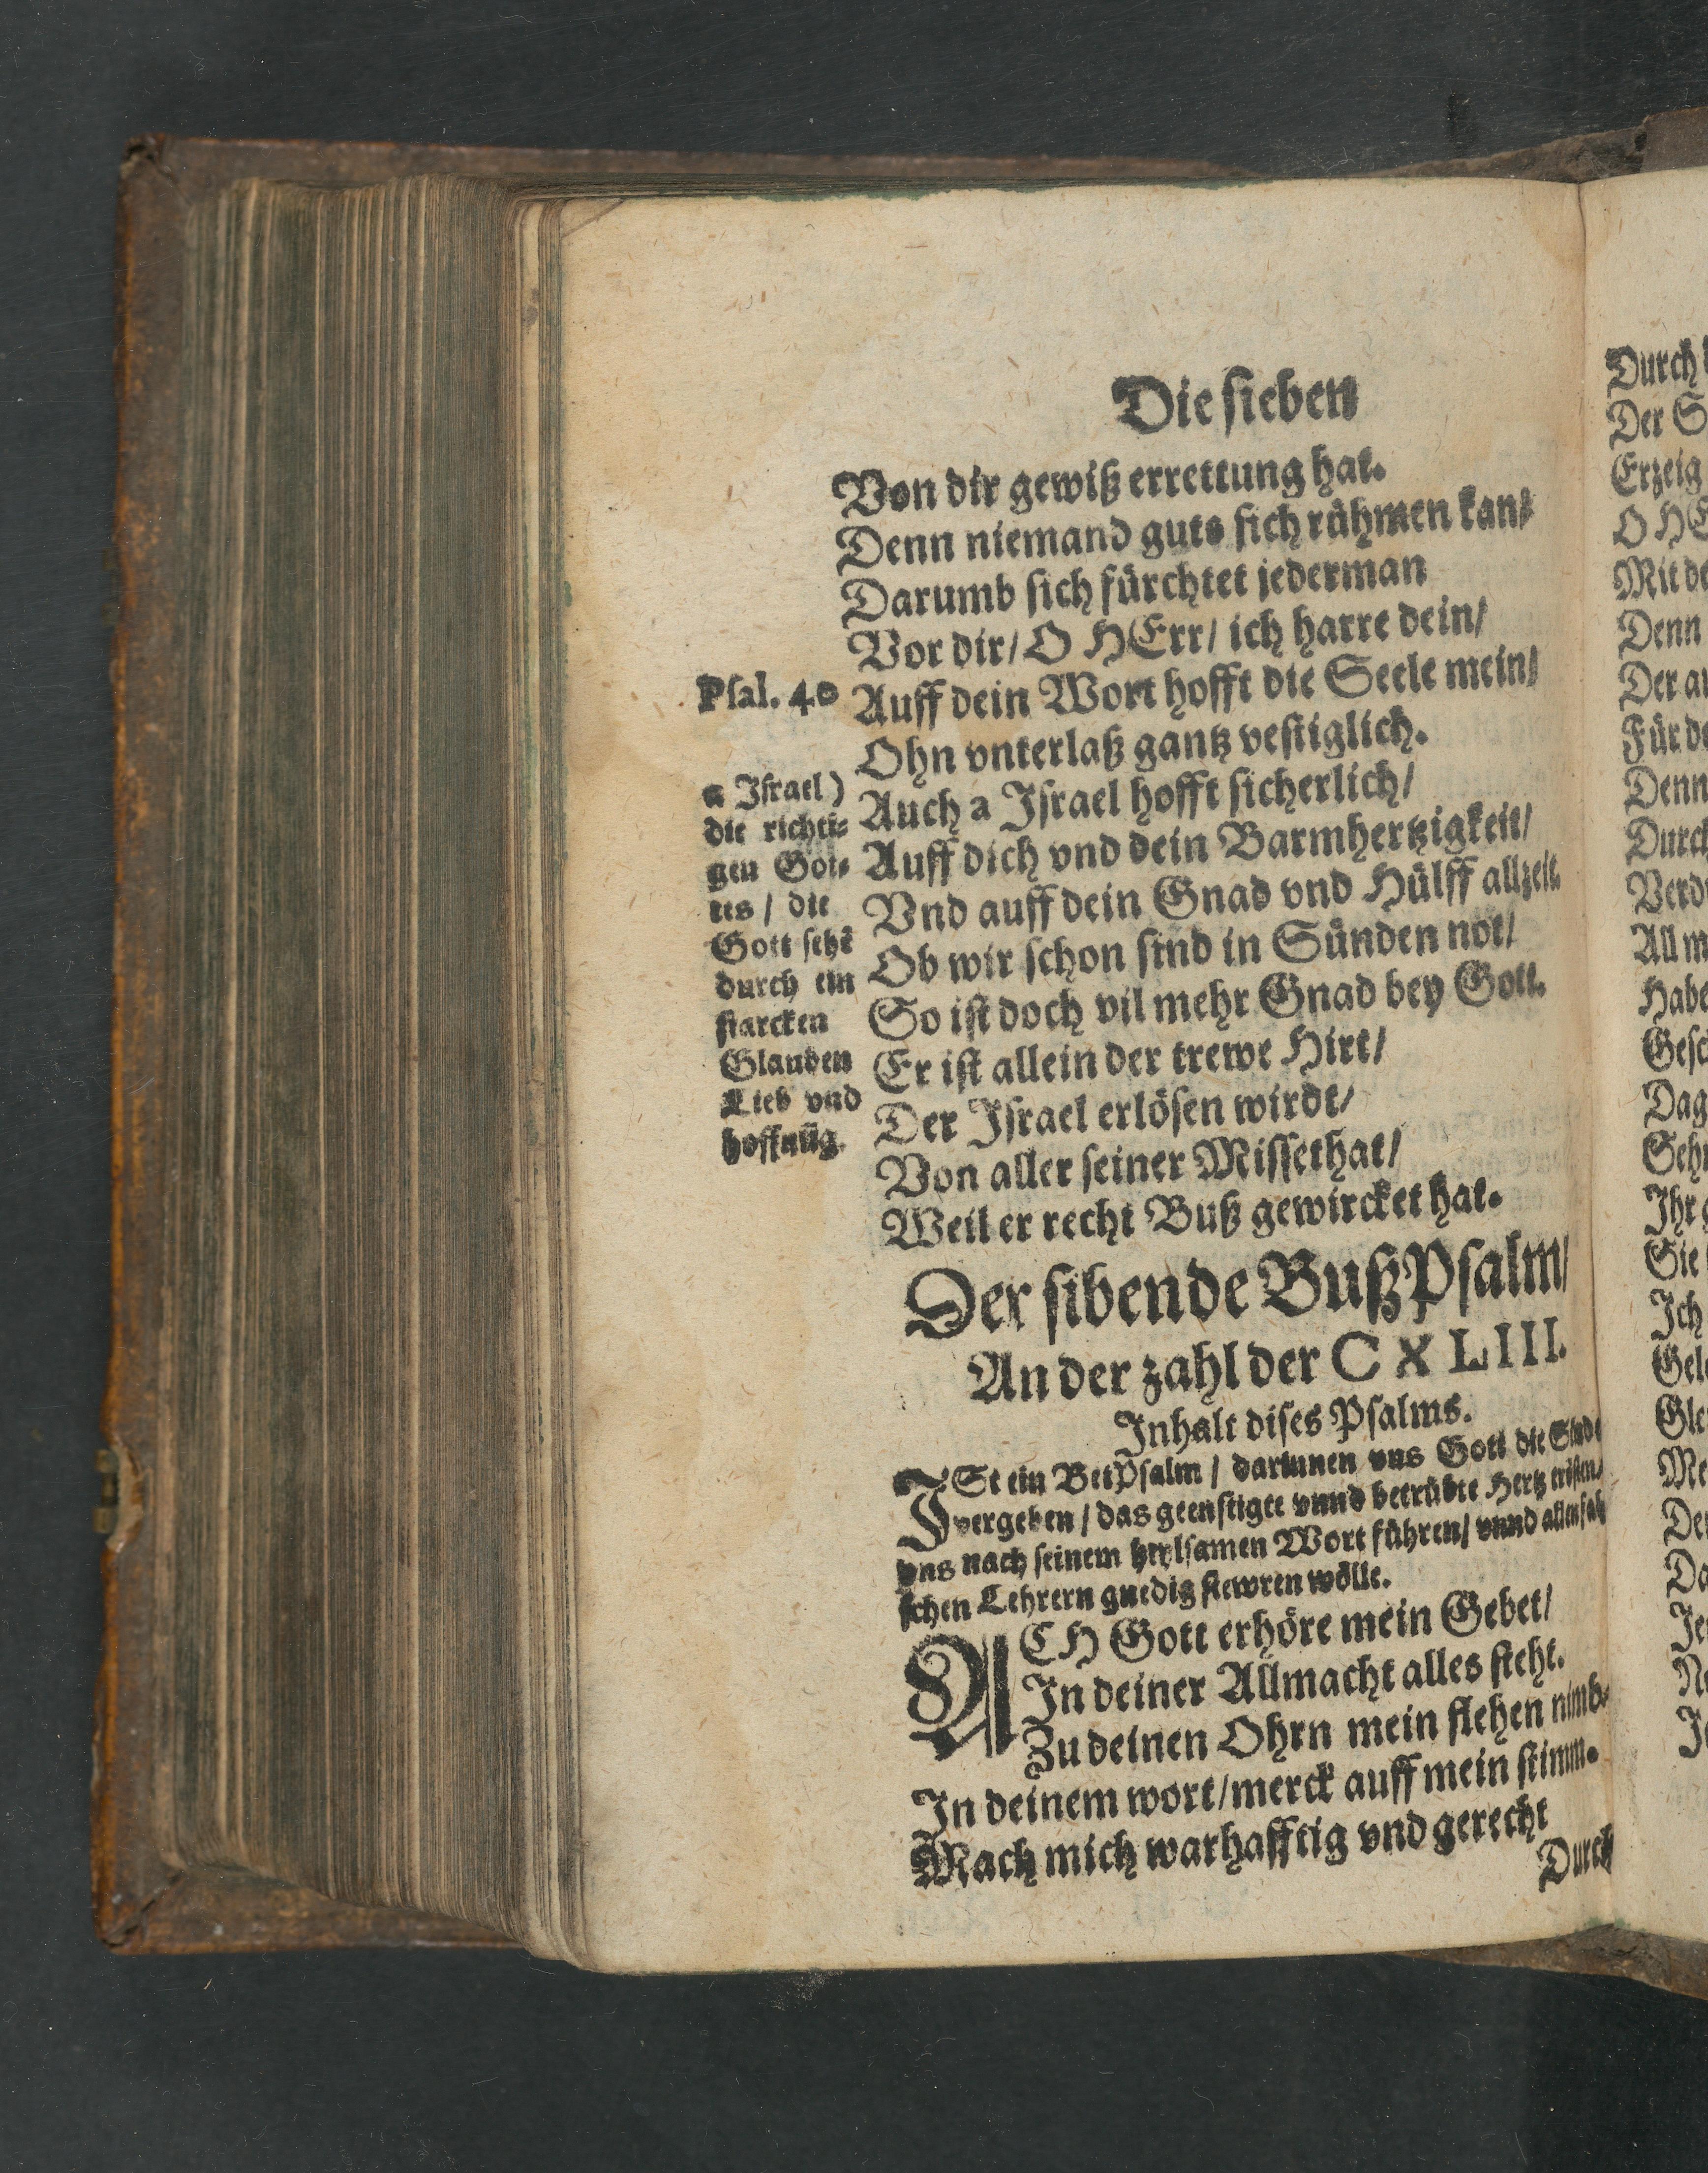 Die sieben
Von dir gewiß errettung hat.
Denn niemand guts sich rühmen kan/
Darumb sich fürchtet jederman
Vor dir/ O HErr/ ich harre dein/
Psal. 40
Auff dein Wort hofft die Seele mein/
Ohn vnterlaß gantz vestiglich.
a Israel)
die richti-
gen Got-
tes / die
Gott sehē
durch ein
starcken
Glauben
Lieb vnd
hoffnūg.
Auch a Israel hofft sicherlich/
Auff dich vnd dein Barmhertzigkeit/
Vnd auff dein Gnad vnd Hülff allzeit.
Ob wir schon sind in Sünden not/
So ist doch vil mehr Gnad bey Gott.
Er ist allein der trewe Hirt/
Der Israel erlösen wirdt/
Von aller seiner Missethat/
Weil er recht Buß gewircket hat.
Der sibende BußPsalm/
An der zahl der CXLIII.
Inhalt dises Psalms.
ISt ein BetPsalm / darinnen vns Gott die Sünde
vergeben / das geenstigte vnnd betrübte Hertz trösten/
vns nach seinem heylsamen Wort führen/ vnnd allen fal-
schen Lehrern gnedig stewren wölle.
ACH Gott erhöre mein Gebet/
In deiner Allmacht alles steht.
Zu deinen Ohrn mein flehen nimb.
In deinem wort/merck auff mein stimm.
Mach mich warhafftig vnd gerecht
Durch
Durch
Der
Erzeig
O HE
Mit
Denn
Der
Für
Denn
Durch
All
Habe
Ihr
Sie
Ich